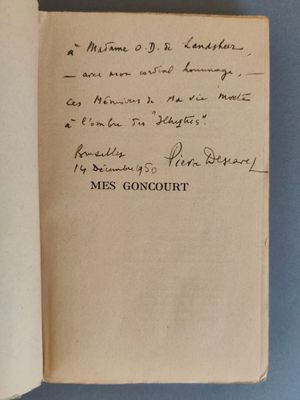 à Madame O. D. de Landsheer,
— avec mon cordial hommage, —
ces Mémoires de Ma vie
à l'ombre des "
Bruxelles
14 Décembre 1950
Pierre Descaves
MES GONCOURT